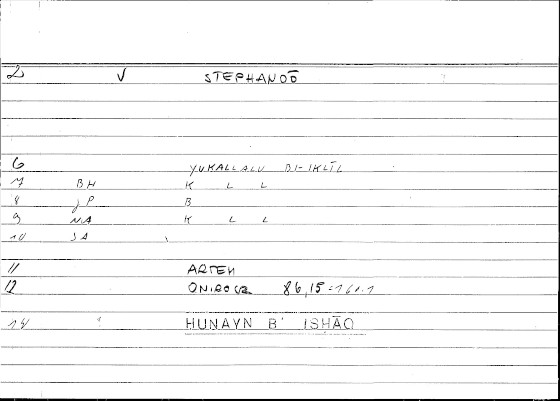 2 V STEPHANOŌ
6 YUKALLALU BI-IKLĪL
7 BH K L L
8 JP B
9 NA K L L
10 SA
11 ARTEM
12 ONIROCR 86,15 = 161.1
14 HUNAYN B' ISHĀQ